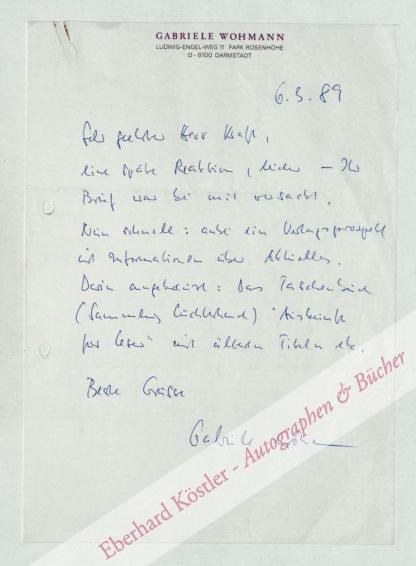 GABRIELE WOHMANN
LUDWIG-ENGEL-WEG 11 PARK ROSENHÖHE
D - 6100 DARMSTADT
6.3.89
Sehr geehrter Herr Kraft,
eine späte Reaktion, leider — Ihr
Brief war bei mir versackt.
Nun schnell: anbei ein Verlagsprospekt
mit Informationen über Aktuelles.
Darin angekreuzt: Das Taschenbuch
(Sammlung Luchterhand) "Auskunft
für Leser" mit älteren Titeln etc.
Beste Grüsse
Gabriele Wohmann
Eberhard Köstler - Autographen & Bücher